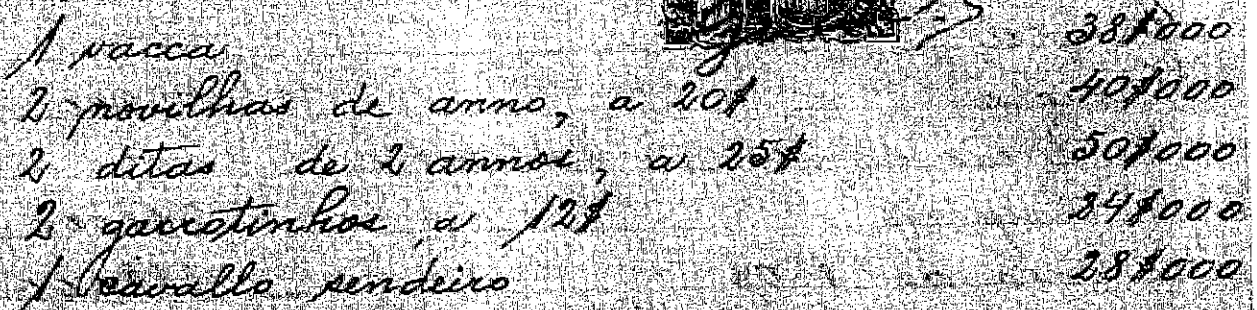 1 vacca 38$000
2 novilhas de anno, a 20$ 40$000
2 ditas de 2 annos, a 25$ 50$000
2 garrotinhos, a 12$ 24$000
1 cavallo sendeiro 28$000